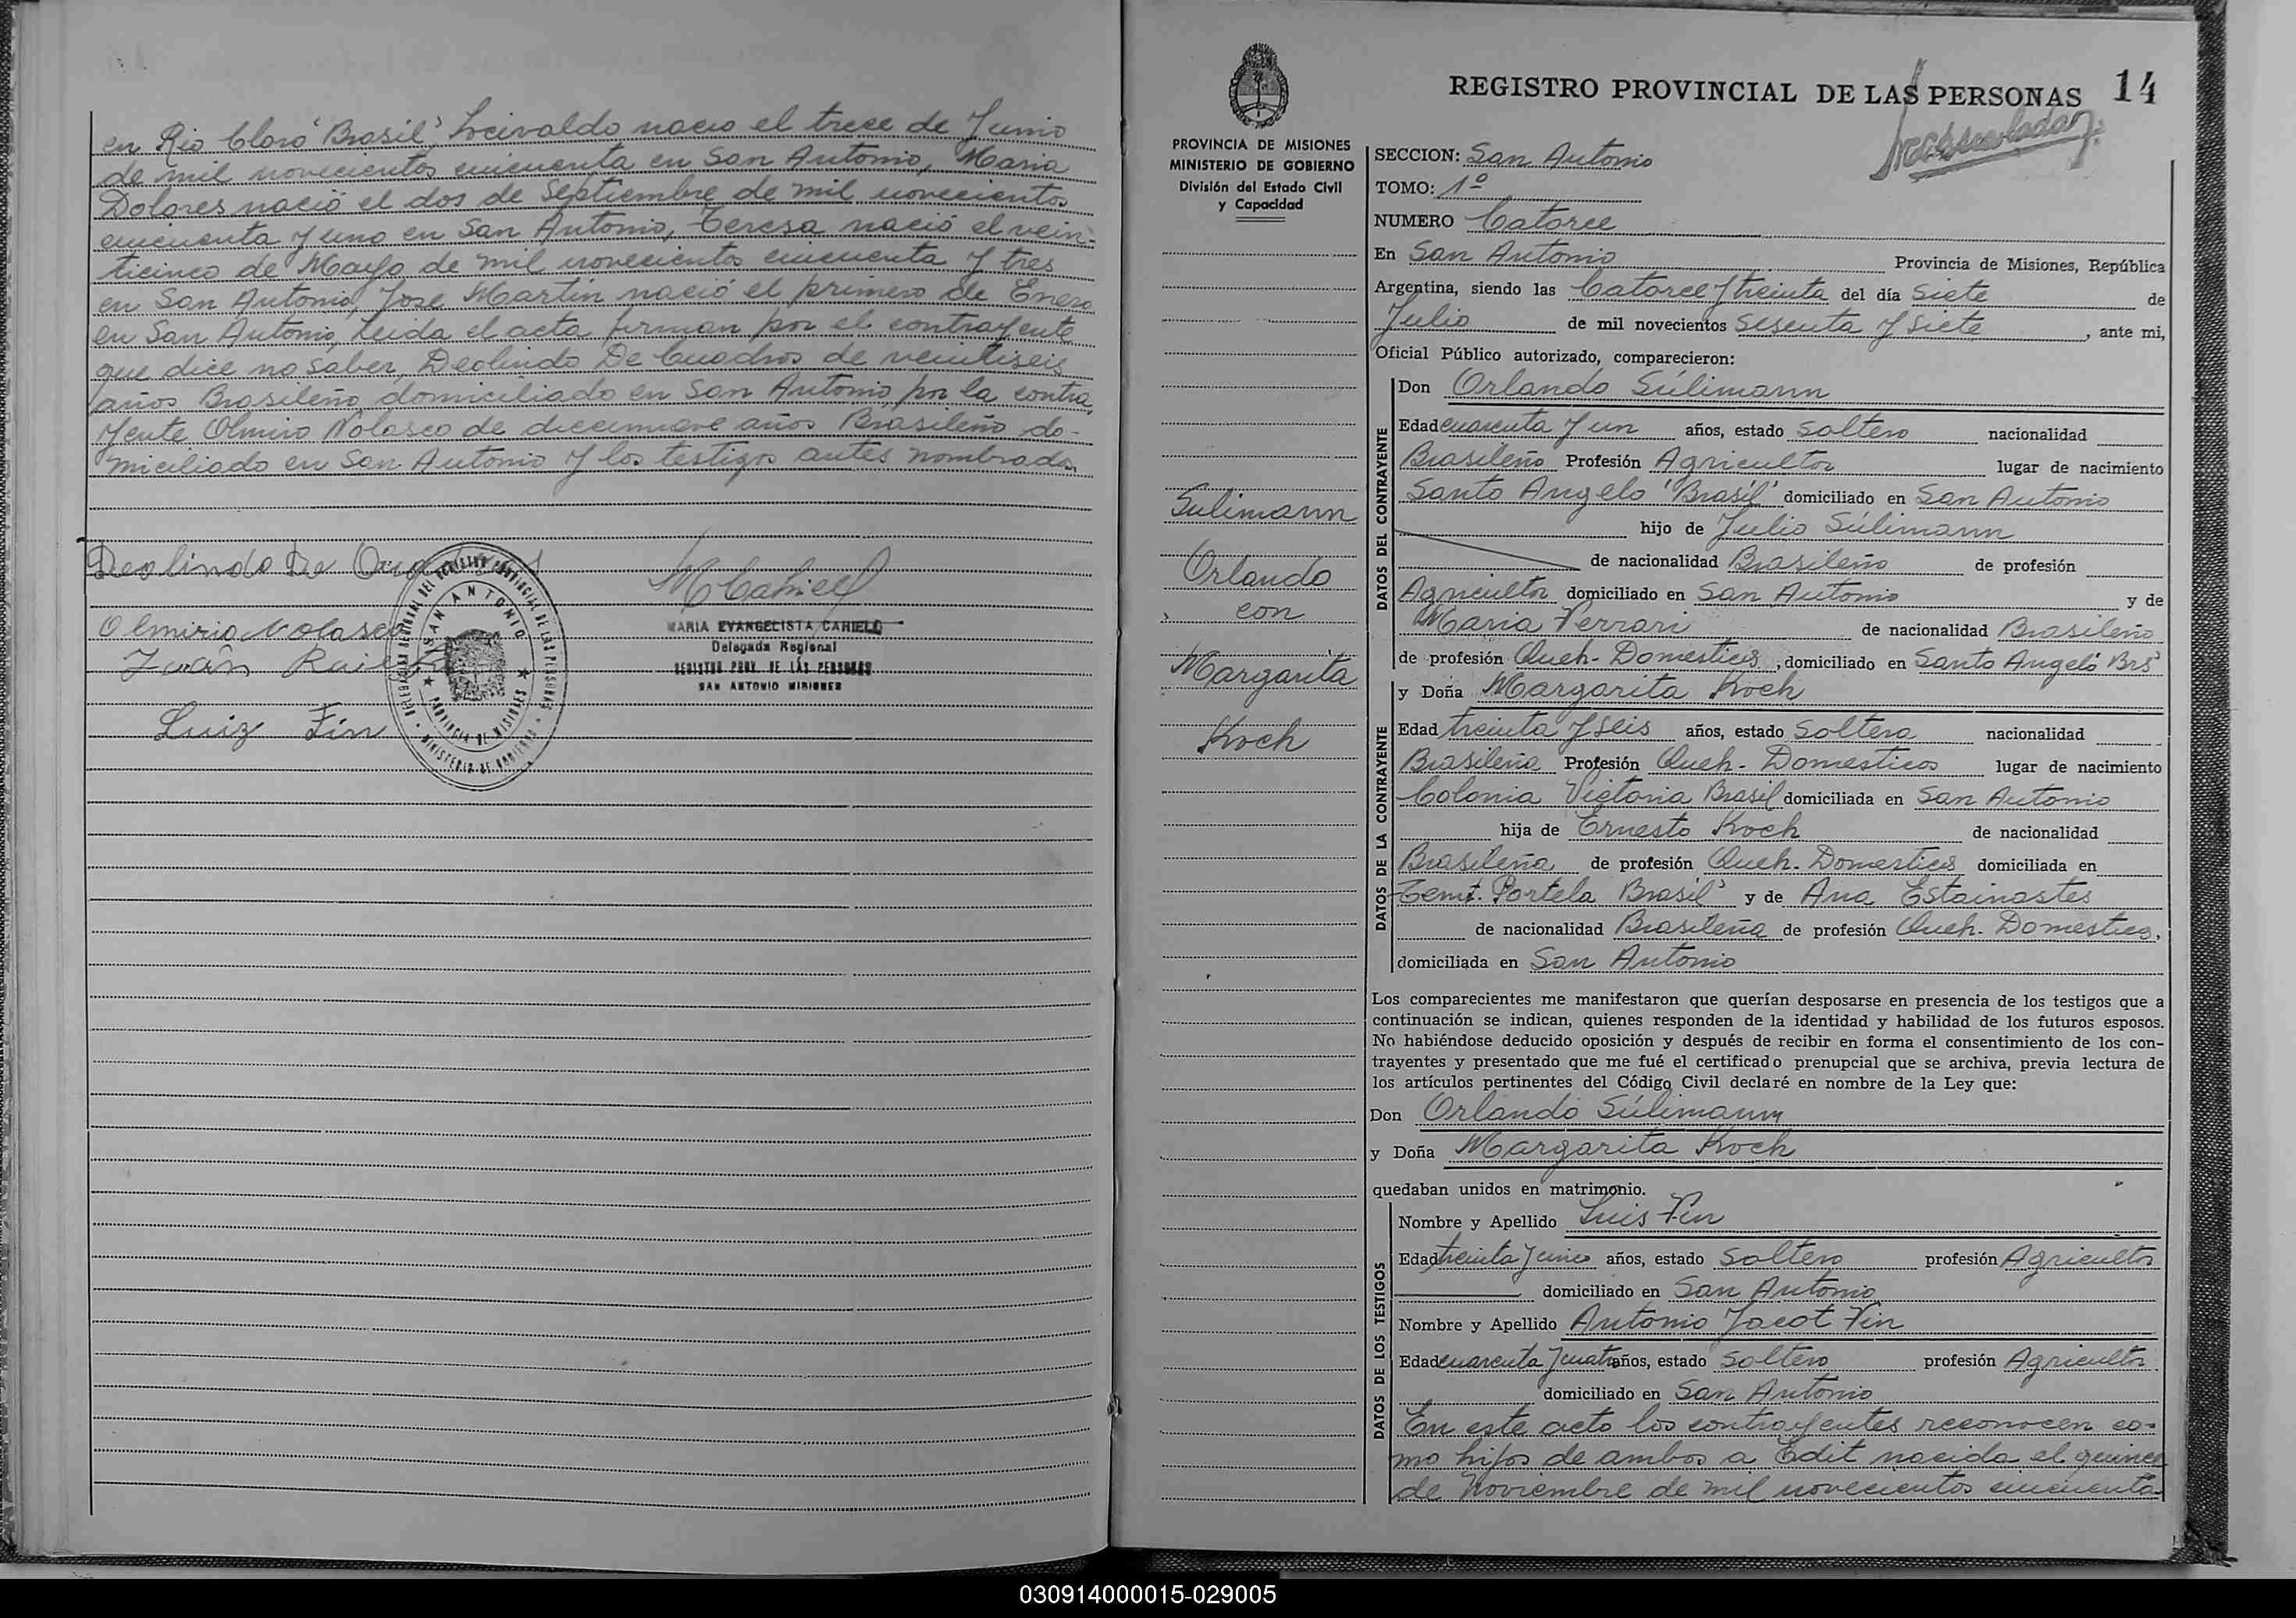 en Rio Claro "Brasil", Locivaldo nacio el trece de Junio
de mil novecientos cincuenta en San Antonio, Maria
Dolores nació el dos de Septiembre de mil novecientos
cincuenta y uno en San Antonio, Teresa nació el vein-
ticinco de Mayo de mil novecientos cincuenta y tres
en San Antonio, Jose Martin nació el primero de Enero
en San Antonio, Leida el acta firman por el contrayente
que dice no saber, Deolindo De Cuadros de veintiseis
años Brasileño domiciliado en San Antonio, por la contra
yente Olmiro Nolasco de diecinueve años Brasileño do-
miciliado en San Antonio y los testigos antes nombrados,
Deolindo De
MCahiell
Olmirio Nolasco
MARIA EVANGELISTA CAHIELL
Delegada Regional
REGISTRO PROV. DE LAS PERSONAS
SAN ANTONIO MISIONES
Juan
Luiz Fin
SAN ANTONIO
PROVINCIA DE MISIONES
MINISTERIO DE GOBIERNO
REGISTRO PROVINCIAL DE LAS PERSONAS 14
PROVINCIA DE MISIONES
MINISTERIO DE GOBIERNO
División del Estado Civil
y Capacidad
SECCION: San Antonio
TOMO: 1º
NUMERO Catorce
En San Antonio Provincia de Misiones, República
Argentina, siendo las Catorce y treinta del día Siete de
Julio de mil novecientos Sesenta y Siete, ante mi,
Oficial Público autorizado, comparecieron:
Sulimann
Orlando
con
Margarita
Koch
DATOS DEL CONTRAYENTE
Don Orlando Súlimann
Edad cuarenta y un años, estado Soltero nacionalidad
Brasileño Profesión Agricultor lugar de nacimiento
Santo Angelo "Brasil" domiciliado en San Antonio
hijo de Julio Súlimann
de nacionalidad Brasileño de profesión
Agricultor domiciliado en San Antonio y de
Maria Ferrari de nacionalidad Brasileño
de profesión Queh. Domesticos, domiciliado en Santo Angeló Brs
DATOS DE LA CONTRAYENTE
y Doña Margarita Koch
Edad treinta y seis años, estado Soltera nacionalidad
Brasileña Profesión Queh. Domesticos lugar de nacimiento
Colonia Victoria Brasil domiciliada en San Antonio
hija de Ernesto Koch de nacionalidad
Brasileña de profesión Queh. Domesticos domiciliada en
Portela Brasil y de Ana Estainastes
de nacionalidad Brasileña de profesión Queh. Domesticos,
domiciliada en San Antonio
Los comparecientes me manifestaron que querían desposarse en presencia de los testigos que a
continuación se indican, quienes responden de la identidad y habilidad de los futuros esposos.
No habiéndose deducido oposición y después de recibir en forma el consentimiento de los con-
trayentes y presentado que me fué el certificado prenupcial que se archiva, previa lectura de
los artículos pertinentes del Código Civil declaré en nombre de la Ley que:
Don Orlando Súlimann
y Doña Margarita Koch
quedaban unidos en matrimonio.
DATOS DE LOS TESTIGOS
Nombre y Apellido Luis Fin
Edad treinta y cinco años, estado Soltero profesión Agricultor
domiciliado en San Antonio
Nombre y Apellido Antonio Jacot Fin
Edad cuarenta y cuatro años, estado Soltero profesión Agricultor
domiciliado en San Antonio
En este acto los contrayentes reconocen co-
mo hijos de ambos a Edit nacida el quince
de Noviembre de mil novecientos cincuenta
030914000015-029005